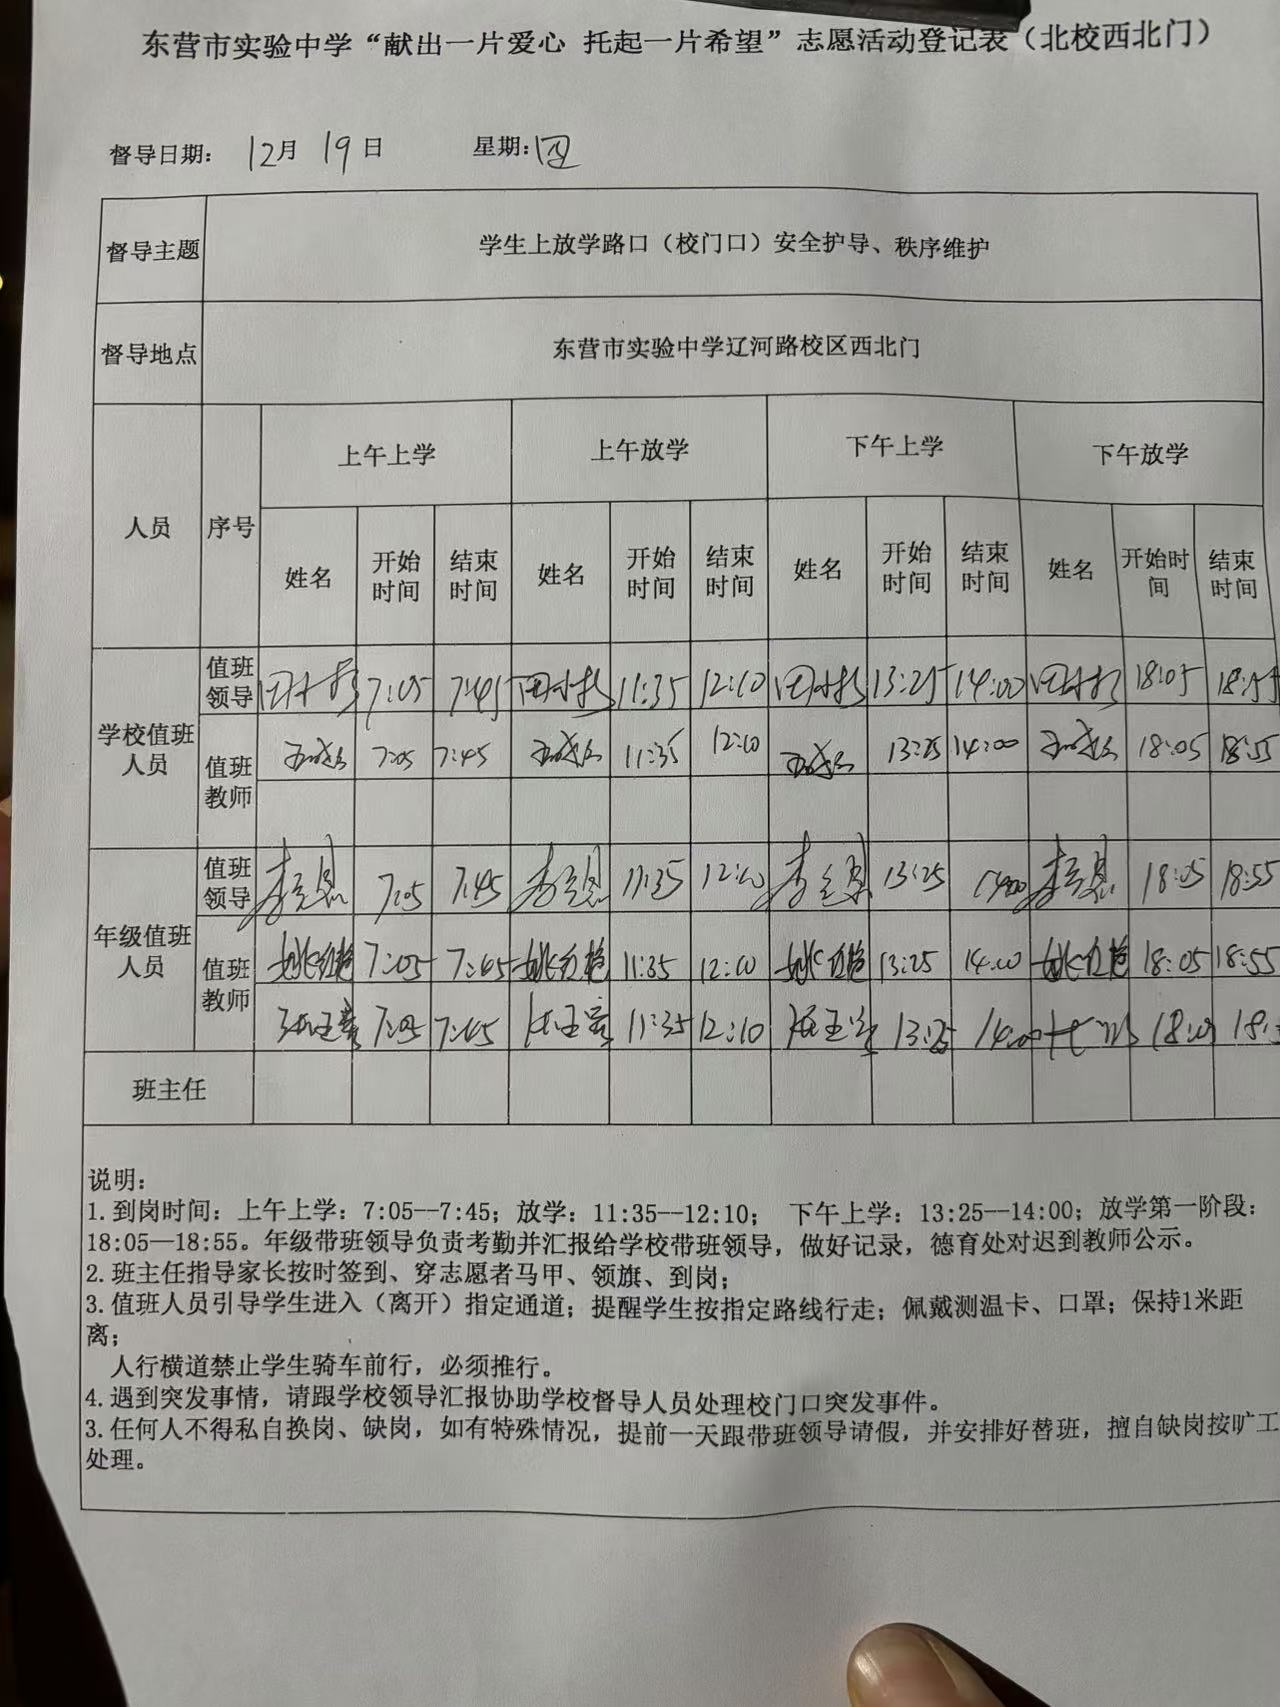 东营市实验中学“献出一片爱心 托起一片希望”志愿活动登记表（北校西北门）
督导日期： 12月 19日 星期：四
督导主题 学生上放学路口（校门口）安全护导、秩序维护
督导地点 东营市实验中学辽河路校区西北门
人员 序号 上午上学 上午放学 下午上学 下午放学
姓名 开始时间 结束时间 姓名 开始时间 结束时间 姓名 开始时间 结束时间 姓名 开始时间 结束时间
学校值班人员 值班领导 7:05 7:45 11:35 12:10 13:25 14:00 18:05
值班教师 7:05 7:45 11:35 12:10 13:25 14:00 18:05 18:55
年级值班人员 值班领导 7:05 7:45 11:35 12:10 13:25 18:05 18:55
值班教师 姚红艳 7:05 7:45 姚红艳 11:35 12:10 姚红艳 13:25 14:00 姚红艳 18:05 18:55
7:05 7:45 11:35 12:10 13:25 14:00
班主任
说明：
1.到岗时间：上午上学：7:05—7:45；放学：11:35—12:10； 下午上学：13:25—14:00；放学第一阶段：
18:05—18:55。年级带班领导负责考勤并汇报给学校带班领导，做好记录，德育处对迟到教师公示。
2.班主任指导家长按时签到、穿志愿者马甲、领旗、到岗；
3.值班人员引导学生进入（离开）指定通道；提醒学生按指定路线行走；佩戴测温卡、口罩；保持1米距
离；
人行横道禁止学生骑车前行，必须推行。
4.遇到突发事情，请跟学校领导汇报协助学校督导人员处理校门口突发事件。
3.任何人不得私自换岗、缺岗，如有特殊情况，提前一天跟带班领导请假，并安排好替班，擅自缺岗按旷工
处理。